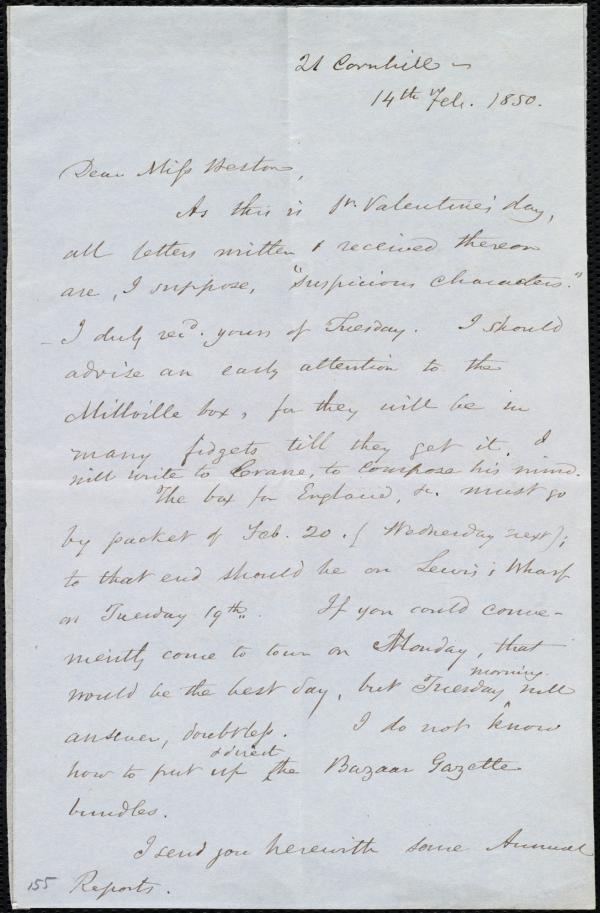 21 Cornhill –
14th Feb. 1850.
Dear Miss Weston,
As this is St. Valentine's day,
all letters written & received thereon
are, I suppose, "suspicious characters."
– I duly rec'd. yours of Tuesday. I should
advise an early attention to the
Millville box, for they will be in
many fidgets till they get it. I
will write to Crane, to compose his mind.
The box for England, &c. must go
by packet of Feb. 20. (Wednesday next);
to that end should be on Lewis's Wharf
on Tuesday 19th. If you could conve-
niently come to town on Monday, that
would be the best day, but Tuesday morning will
answer, doubtless. I do not know
how to put up & direct the Bazaar Gazette
bundles.
I send you herewith some Annual
Reports.
155